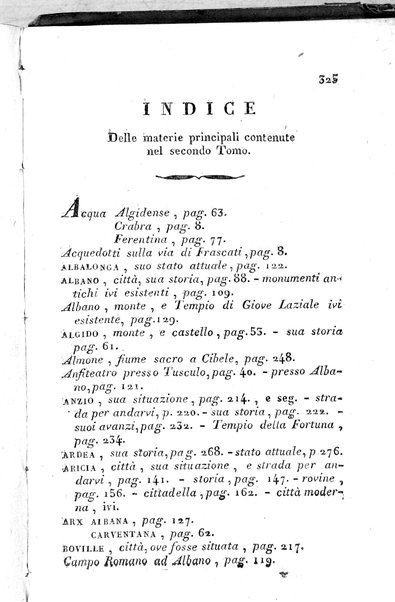 325
INDICE
Delle materie principali contenute
nel secondo Tomo.
Acqua Algidense , pag. 63.
Crabra , pag. 8.
Ferentina , pag. 77.
Acquedotti sulla via di Frascati , pag. 8.
ALBALONGA , suo stato attuale, pag. 122.
ALBANO , città, sua storia, pag. 88. - monumenti an-
tichi ivi esistenti , pag. 109.
Albano , monte , e Tempio di Giove Laziale ivi
esistente, pag. 129.
ALGIDO , monte , e castello , pag. 53. - sua storia
pag. 61.
Almone , fiume sacro a Cibele, pag. 248.
Anfiteatro presso Tusculo, pag. 40. - presso Alba-
no, pag. 121.
ANZIO , sua situazione , pag. 214. , e seg. - stra-
da per andarvi, p. 220. - sua storia , pag. 222. -
suoi avanzi, pag. 232. - Tempio della Fortuna ,
pag. 234.
ARDEA , sua storia, pag. 268. - stato attuale, p 276.
ARICIA , città , sua situazione , e strada per an-
darvi , pag. 141. - storia , pag. 147. - rovine ,
pag. 156. - cittadella , pag. 162. - città moder-
na , ivi.
ARX ALBANA , pag. 127.
CARVENTANA , pag. 62.
BOVILLE , città, ove fosse situata , pag. 217.
Campo Romano ad Albano , pag. 119.